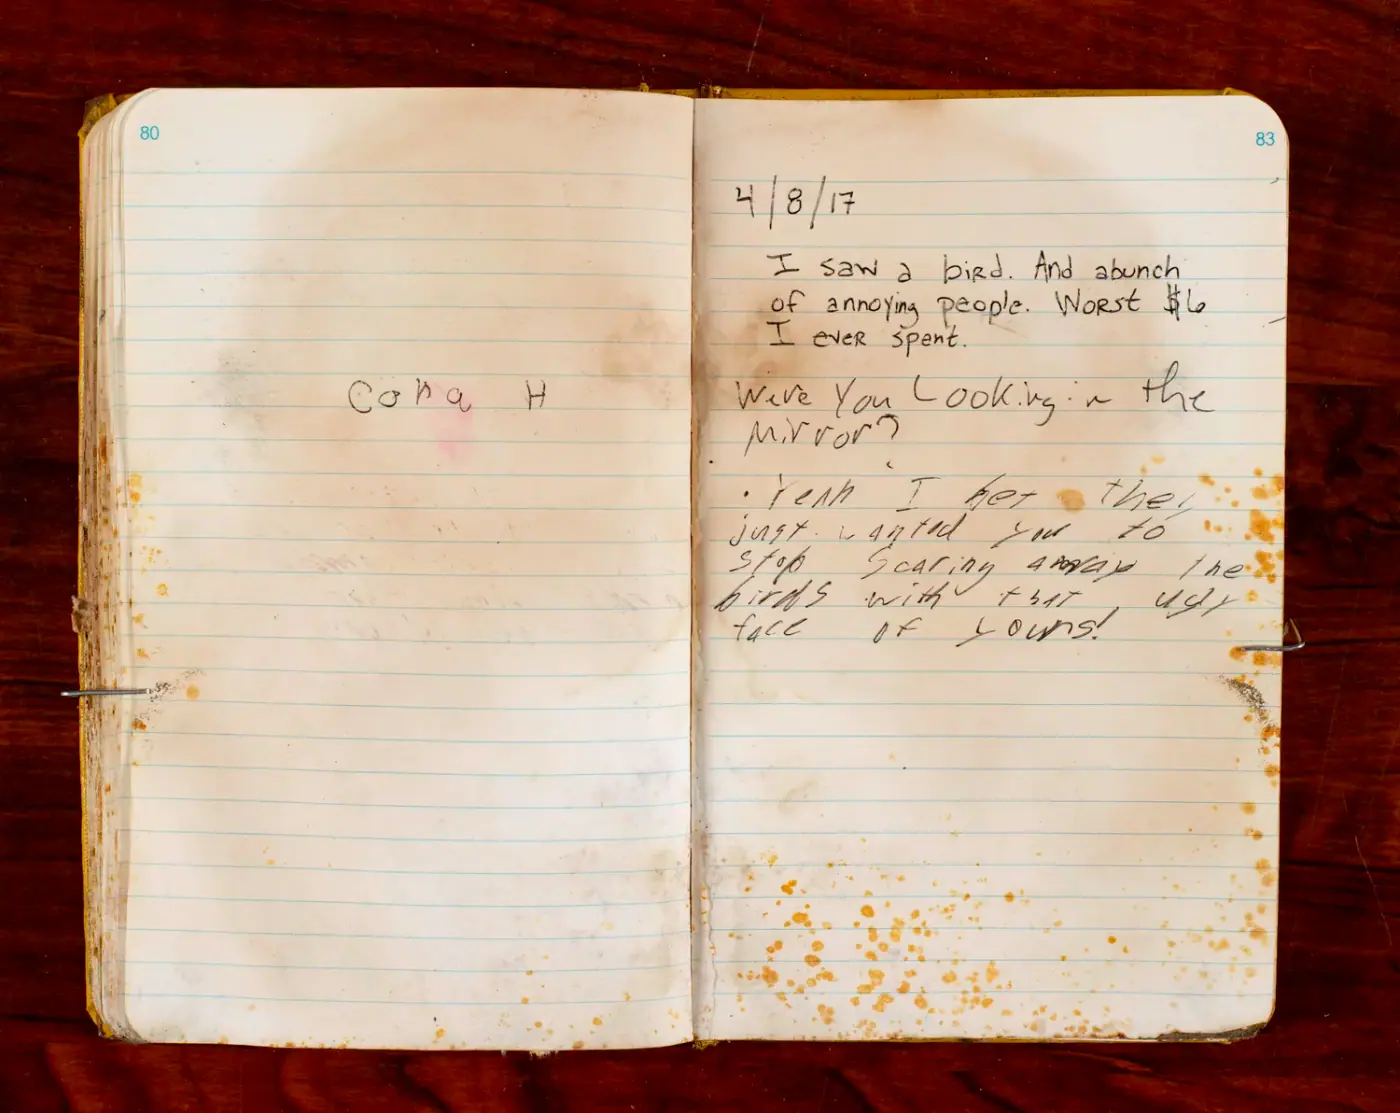 80
Cora H
83
4/8/17
I saw a bird. And abunch
of annoying people. Worst $6
I ever spent.
Were You Looking in the
Mirror?
. Yeah I bet they
just wanted you to
stop scaring away the
birds with that ugly
face of yours!